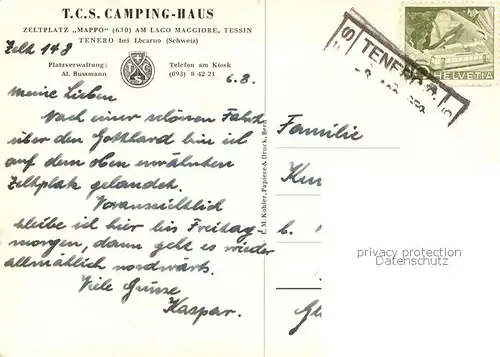 T.C.S. CAMPING-HAUS
ZELTPLATZ „MAPPO" (630) AM LAGO MAGGIORE, TESSIN
TENERO bei Locarno (Schweiz)
Zelt 148
Platzverwaltung:
Al. Bussmann
Telefon am Kiosk
(093) 8 42 21
6.8.
meine Lieben
Nach einer schönen Fahrt
über den Gotthard bin ich
auf dem oben erwähnten
Zeltplatz gelandet.
Voraussichtlich
bleibe ich hier bis Freitag
morgen, dann geht es wieder
allmählich nordwärts.
Viele Grüsse
Kaspar.
L. M. Kohler, Papiere & Druck, Bern
TENERO
HELVETIA
Familie
Kun
b.
privacy protection
Datenschutz